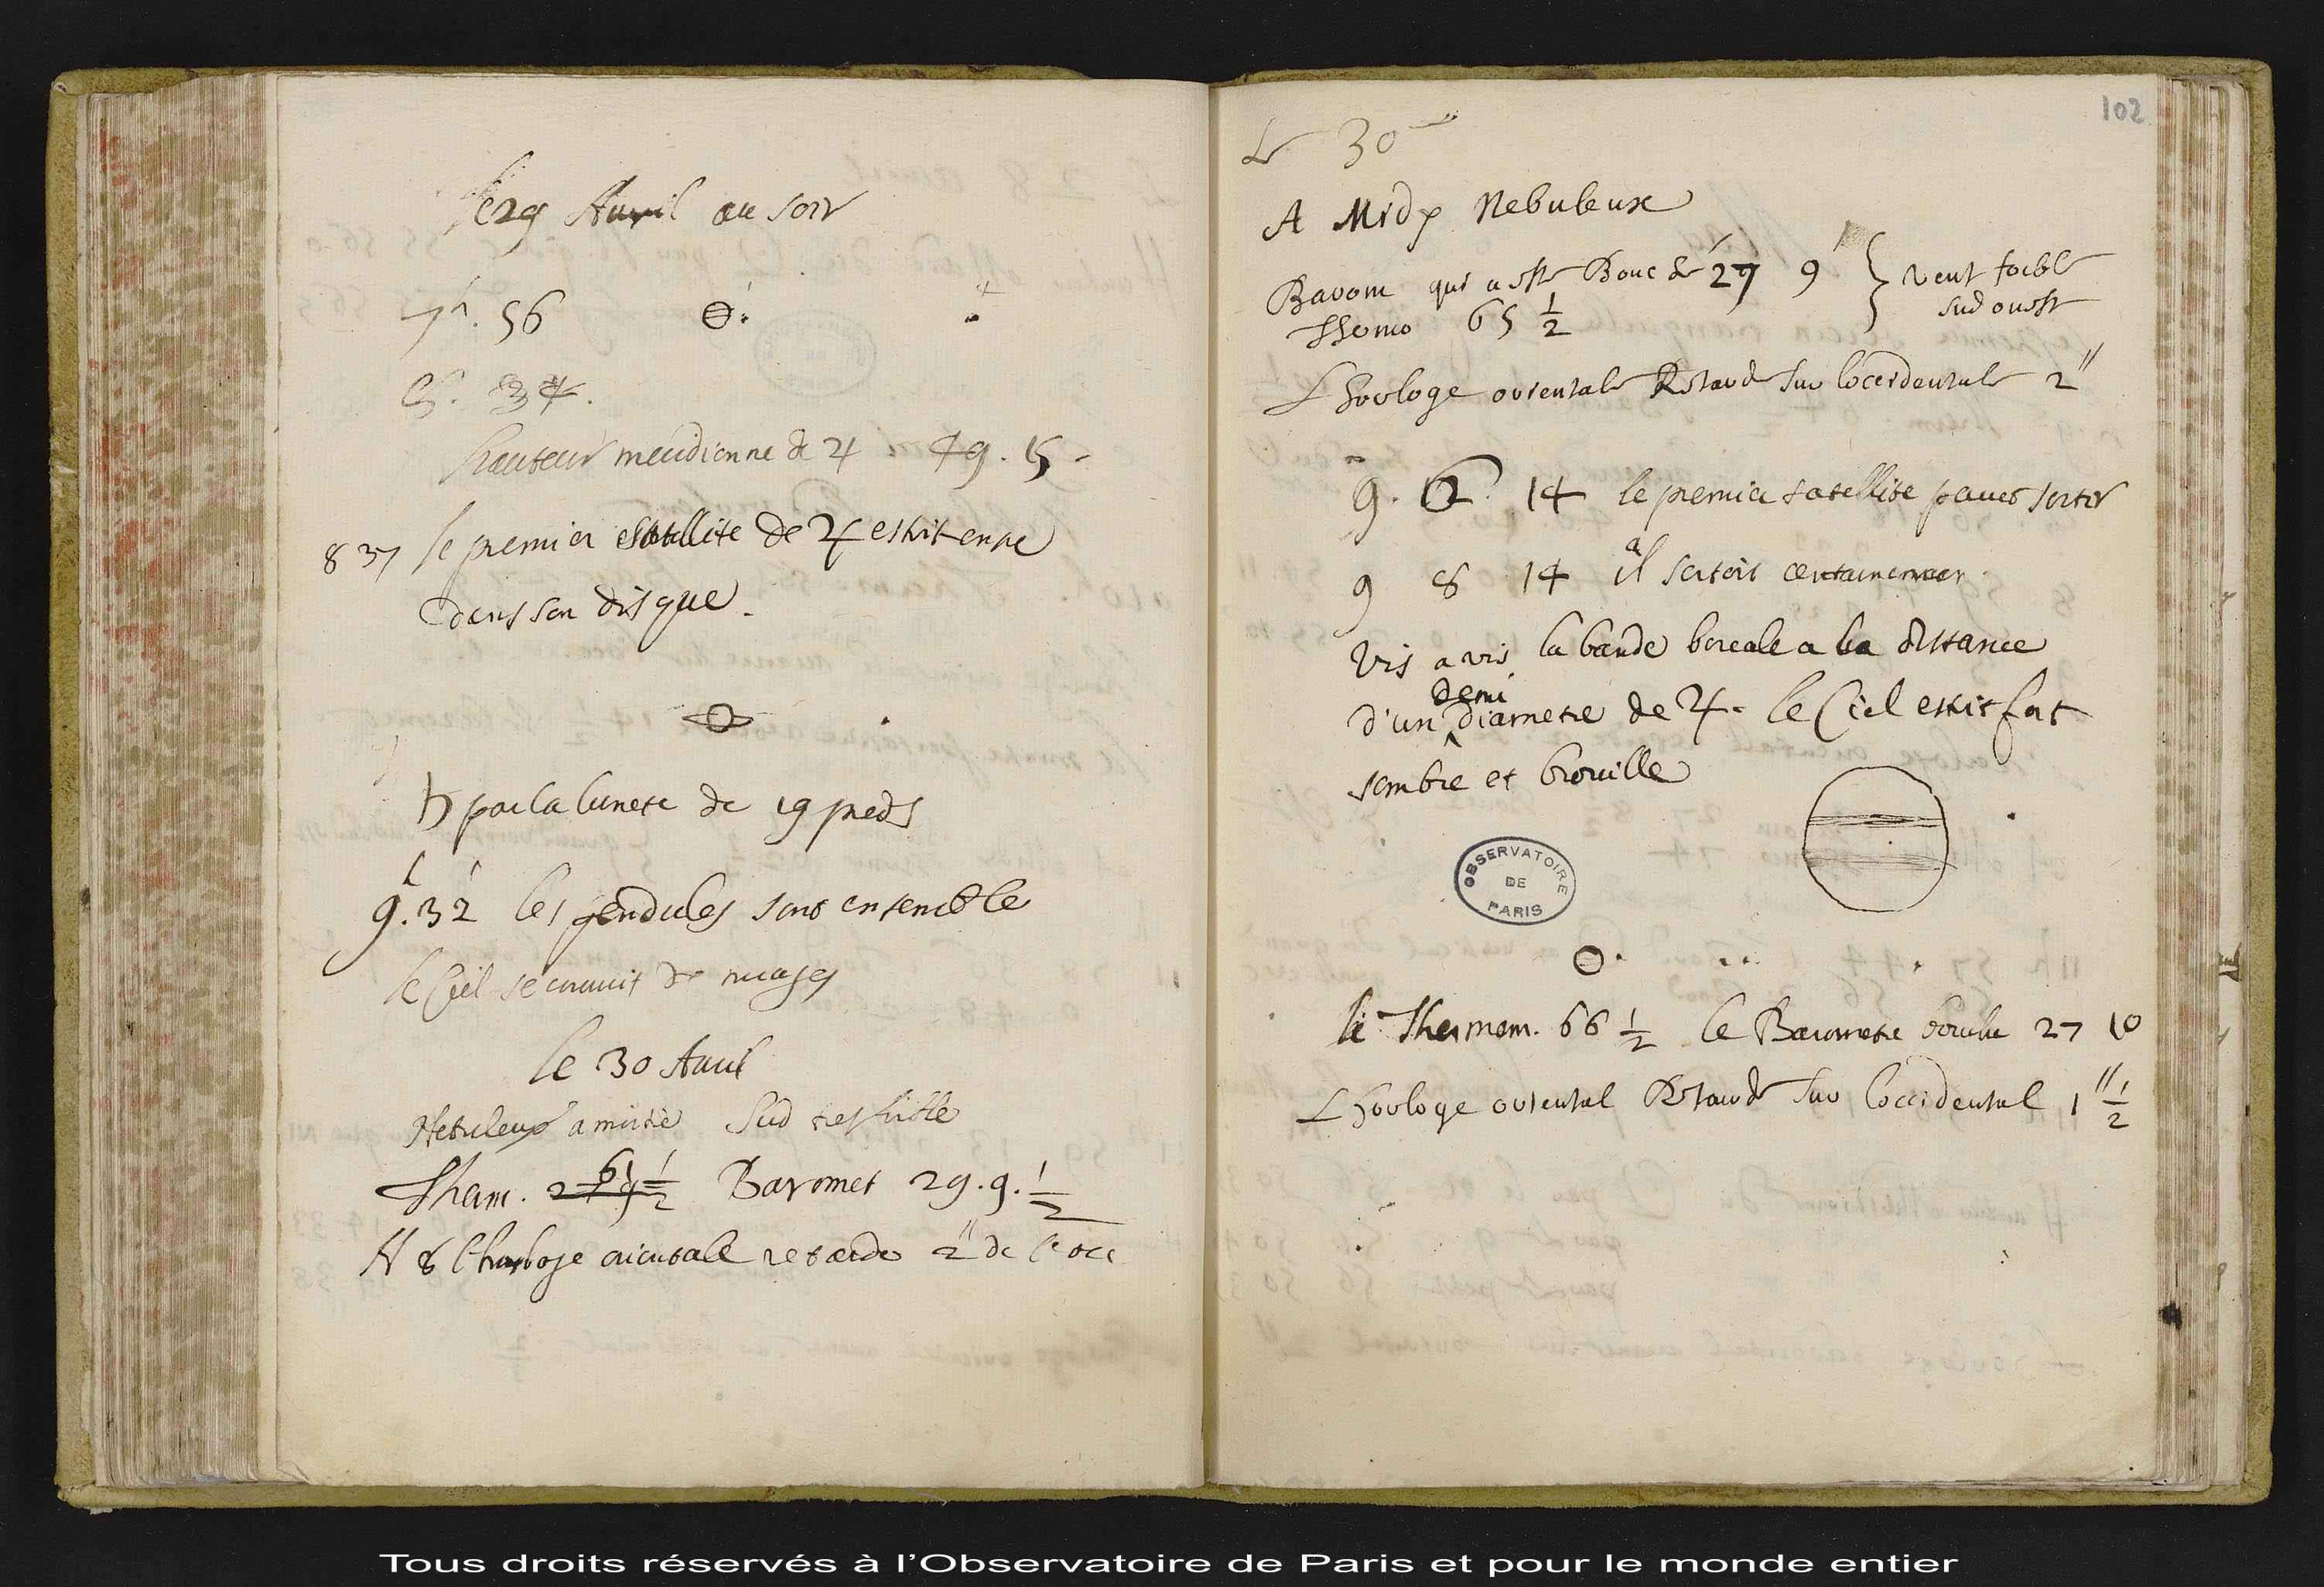 le 29 Auril au soir
7h. 56
8. 34.
hauteur meridienne de ♃ 49. 15
8 37 le premier satellite de ♃ estoit entré
dans son disque.
♄ par la lunete de 19 pieds
9h. 32' les pendules sont ensemble
le Ciel se couurit de nuages
le 30 Auril
Nebuleux a midi Sud tres foible
Therm. Baromet 29. 9. 1/2
A 8 l'horloge orientale retarde 2" de l'occ
102
Le 30
A Midy Nebuleux
Barom qui a esté Bouché 27 9 } vent foible
Thermo 65 1/2 sud ouest
L'horloge orientale Retarde sur l'occidentale 2"
9. 14 le premier satellite parut sortir
9 8 14 il sortoit certainement
vis a vis la bande boreale a la distance
d'un demi diametre de ♃. le Ciel estoit fort
sombre et brouillé
OBSERVATOIRE DE PARIS
le Thermom. 66 1/2 le Barometre bouché 27 10
L'horloge oriental Retarde sur l'occidental 1" 1/2
Tous droits réservés à l'Observatoire de Paris et pour le monde entier